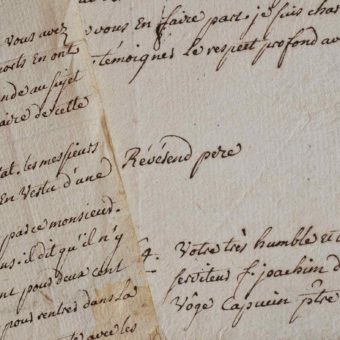 vous avez
en ont
au sujet
de cette
les messieurs
En Vertu d'une
par ce monsieur.
il dit qu'il n'y
pour deux cent
pour rentrer dans la
avec les
vous en faire part. je suis char
témoigner le respect profond av
Révérend pere
Votre très humble et
serviteur f. joachim d
Vôge Capucin ptre